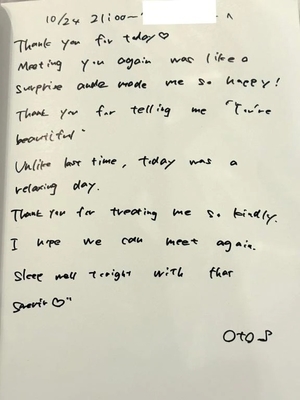 10/24 21:00~
Thank you for today♡
Meeting you again was like a
surprise and made me so happy!
Thank you for telling me "You're
beautiful"
Unlike last time, today was a
relaxing day.
Thank you for treating me so kindly.
I hope we can meet again.
Sleep well tonight with that
♡"